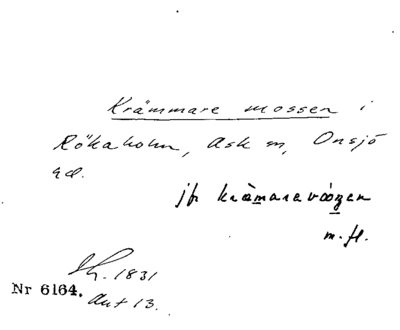 Krämmare mossen i
Rökaholm, Ask sn, Onsjö
hd.
jfr kràmaravóägen
m. fl.
Lh. 1831
Nr 6164. Ant 13.